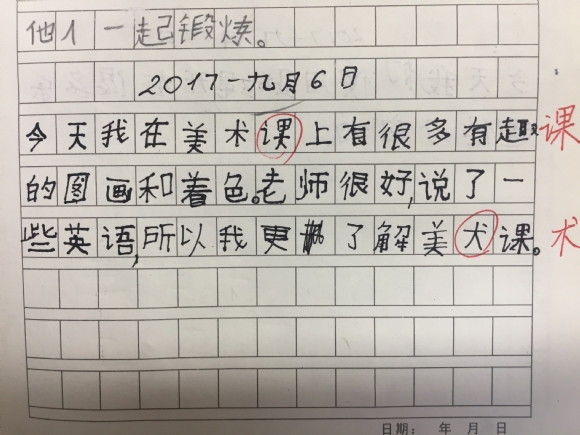 他们一起锻炼。
2017-九月6日
今天我在美术课上有很多有趣 课
的图画和着色。老师很好,说了一
些英语,所以我更了解美犬课。 术
日期： 年 月 日